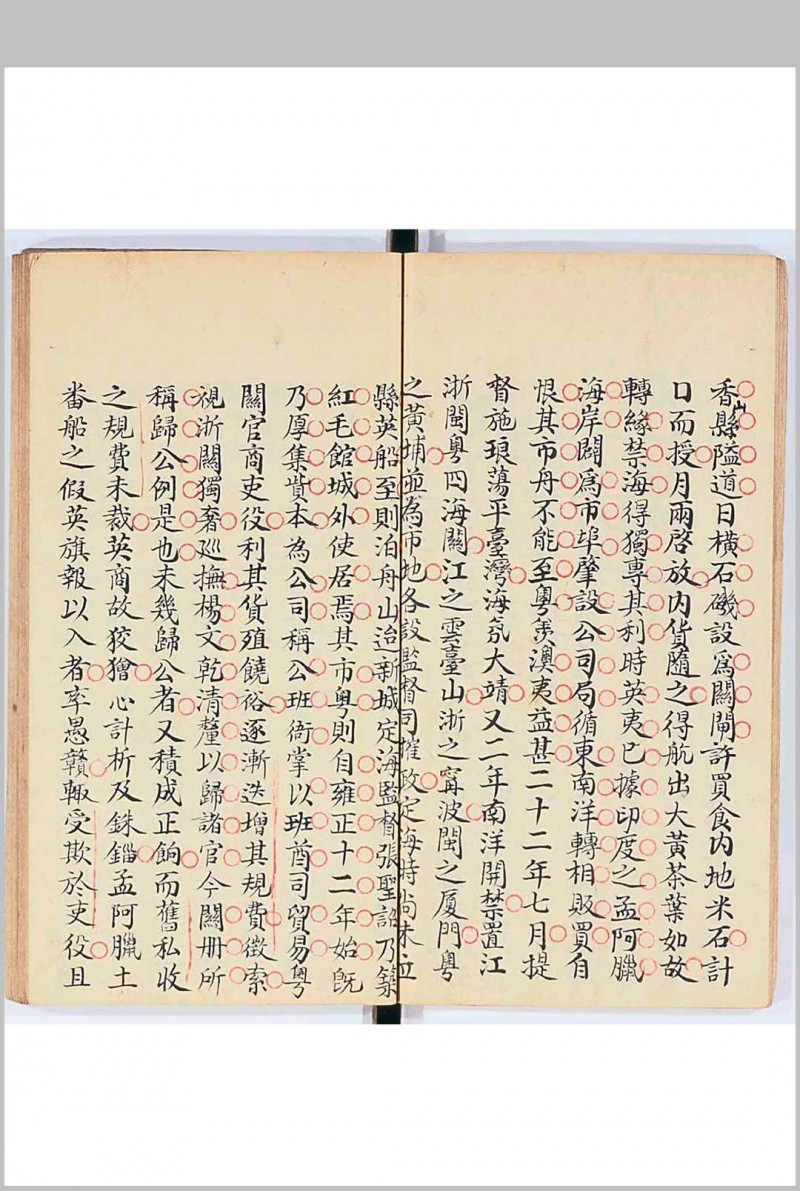 香山縣隘道曰橫石磯設爲關閘許買食內地米石計
口而授月兩啓放內貨隨之得航出大黃茶葉如故
轉緣禁海得獨專其利時英夷已據印度之孟阿臘
海岸闢爲市埠肇設公司局循東南洋轉相販買自
恨其市舟不能至粵羨澳夷益甚二十二年七月提
督施琅蕩平臺灣海氛大靖又二年南洋開禁置江
浙閩粵四海關江之雲臺山浙之寧波閩之厦門粵
之黃埔並為市地各設監督司搉政定海時尚未立
縣英船至則泊舟山迨新城定海監督張聖詔乃築
紅毛館城外使居焉其市粵則自雍正十二年始旣
乃厚集貲本為公司稱公班衙掌以班酋司貿易粵
關官商吏役利其貨殖饒裕逐漸迭增其規費徵索
視浙關獨奢巡撫楊文乾清釐以歸諸官今關册所
稱歸公例是也未幾歸公者又積成正餉而舊私收
之規費未裁英商故狡獪心計析及銖錙孟阿臘土
番船之假英旗報以入者率愚贛輙受欺於吏役且